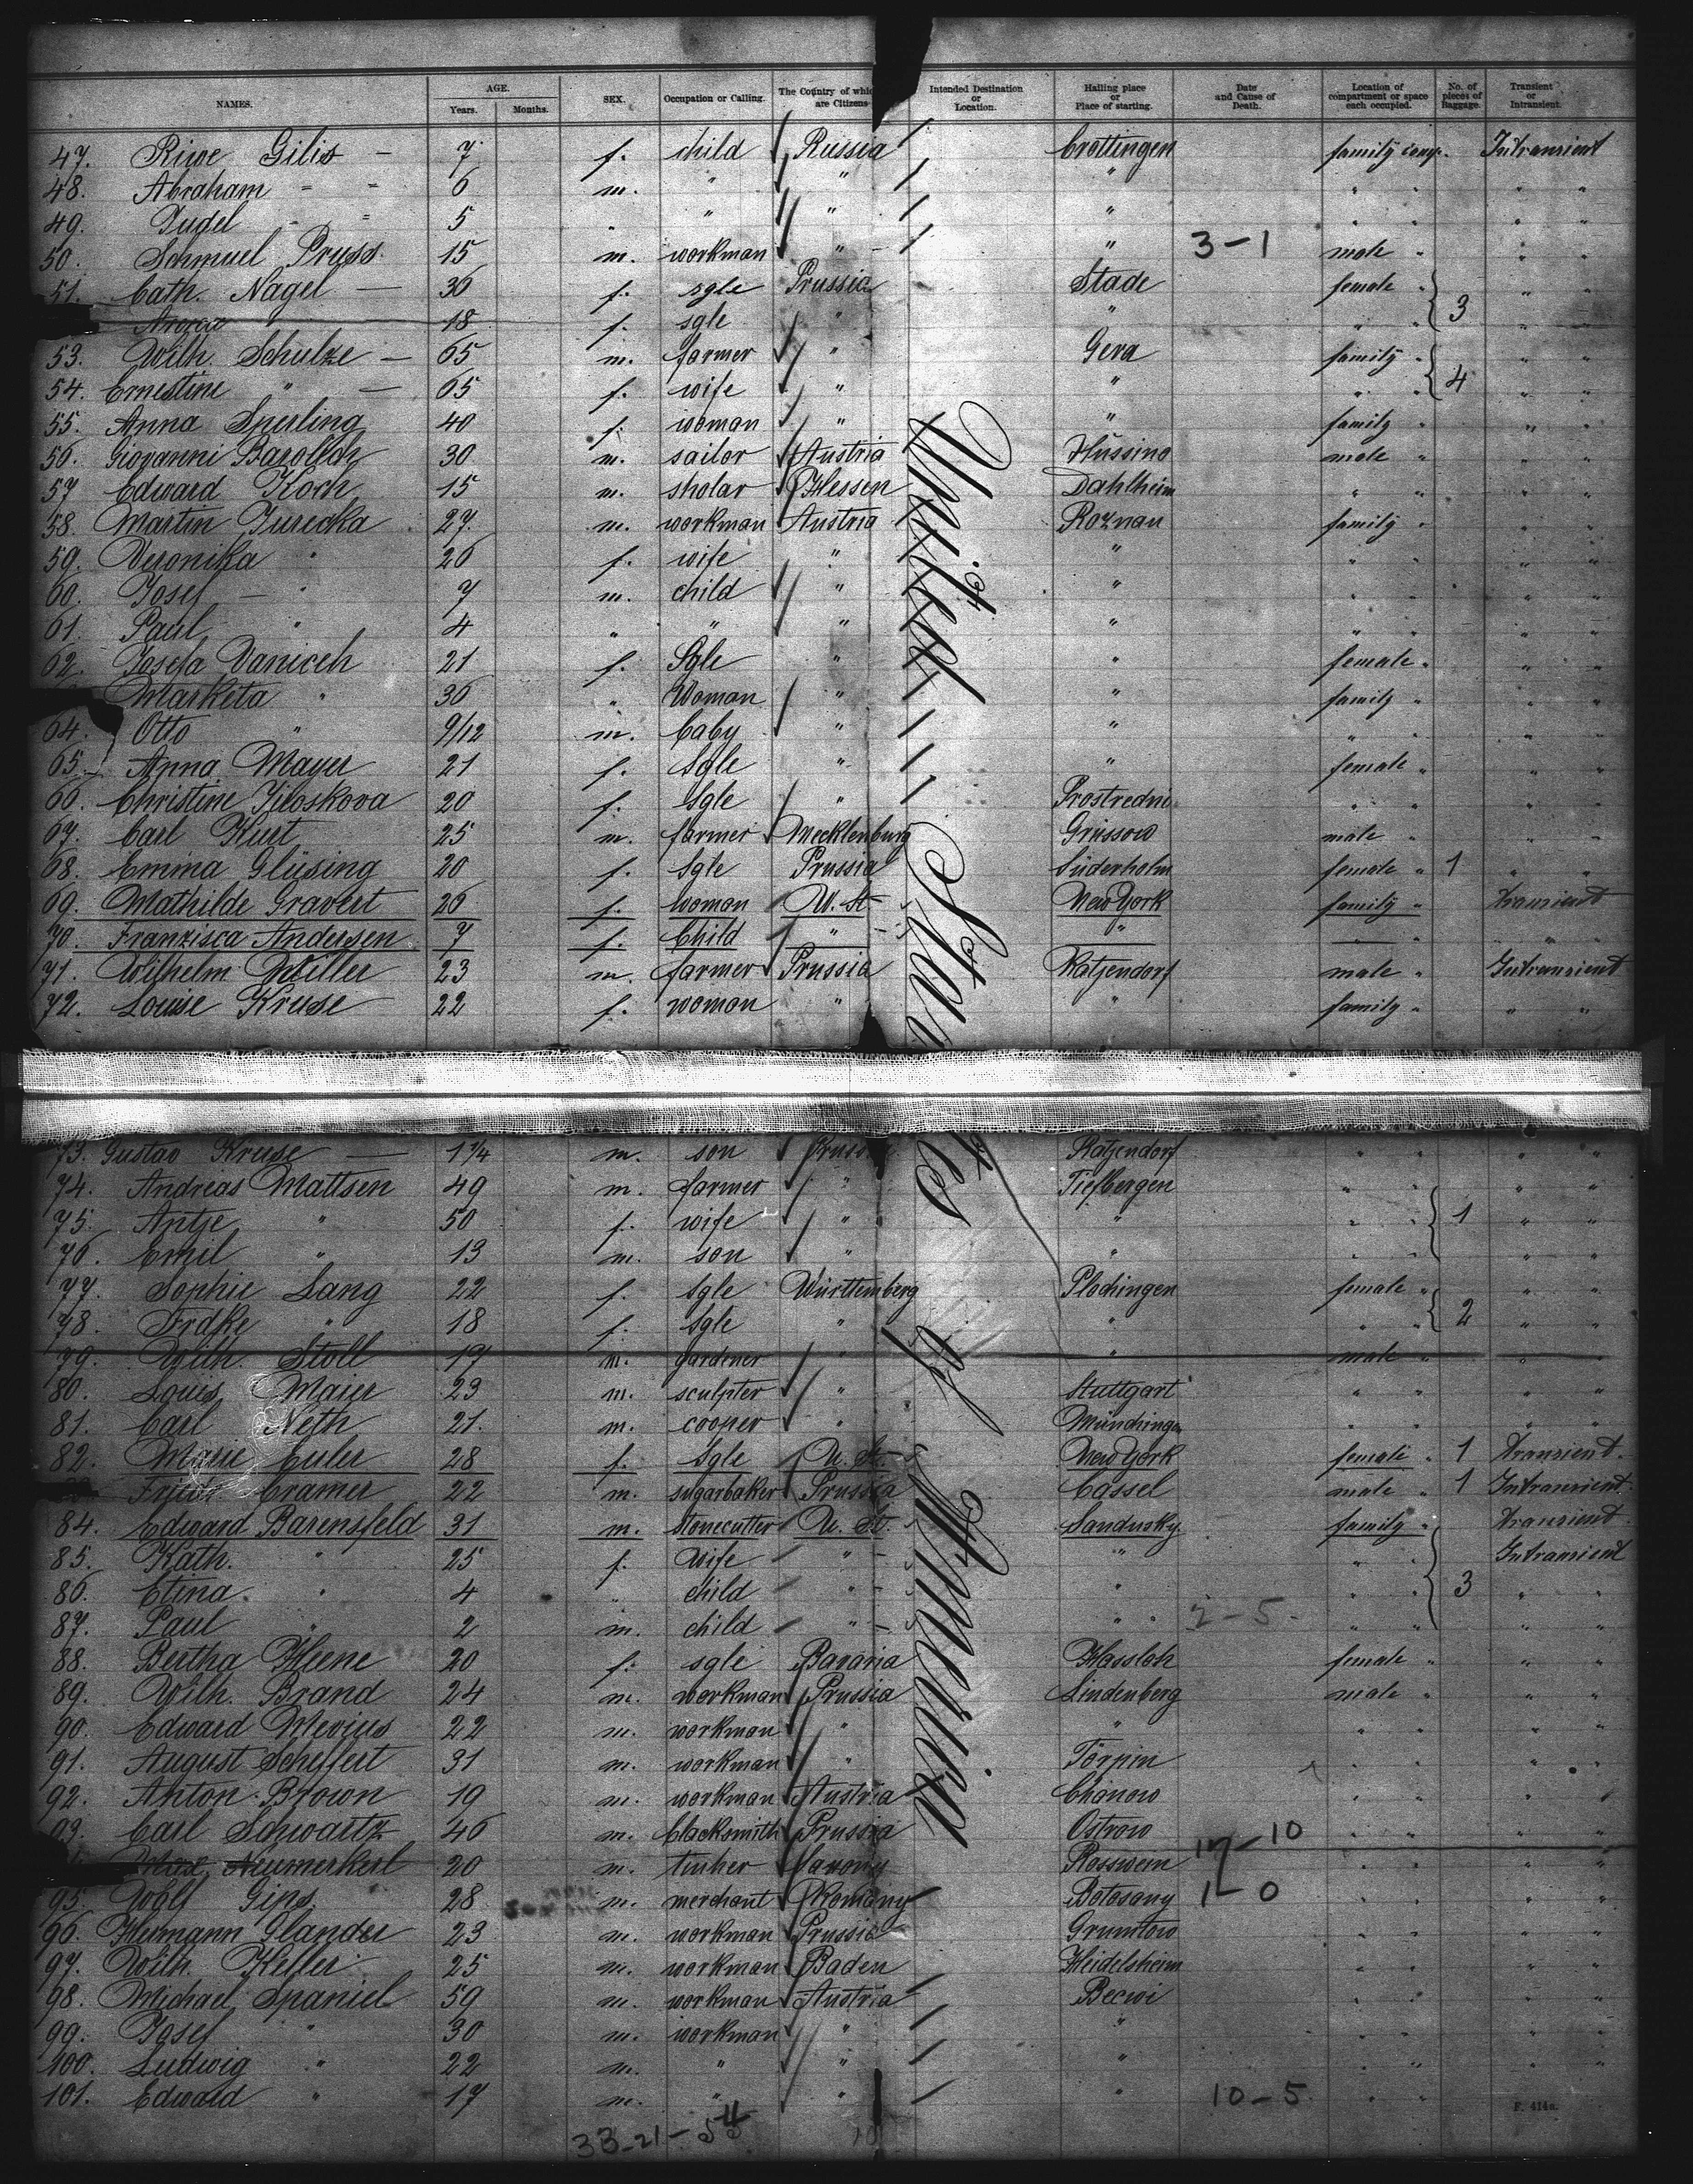 NAMES. AGE. Years. Months. SEX. Occupation or Calling. The Country of which are Citizens Intended Destination or Location. Hailing place or Place of starting. Date and Cause of Death. Location of compartment or space each occupied. No. of pieces of Baggage. Transient or Intransient.
47. Riwe Gilis — 7 f. child Russia Crottingen family comp. Intransient
48. Abraham " " 6 m. " " " " " " "
49. Judel " " 5 " " " " " " " "
50. Schmuel Pruss. 15 m. workman " " 3-1 male " " "
51. Cath. Nagel — 36 f. sgle Prussia Stade female " 3 " "
18 f. sgle " " " " " "
53. Wilh. Schulze — 65 m. farmer " Gera family " 4 " "
54. Ernestine " — 65 f. wife " " " " " "
55. Anna Sperling 40 f. woman " " family " " "
56. Giovanni Barolich 30 m. sailor Austria Hussino male " " "
57 Edward Koch 15 m. sholar Hessen Dahlheim " " " "
58. Martin Jurecka 27. m. workman Austria Roznau family " " "
59. Veronika " 26 f. wife " " " " " "
60. Josef — " 7 m. child " " " " " "
61. Paul " 4 " " " " " " " "
62. Josefa Vanicek 21 f. Sgle " " female " " "
Marketa " 36 " Woman " " family " " "
64. Otto " 9/12 m. baby " " " " " "
65. Anna Mayer 21 f. Sgle " " female " " "
66. Christine 20 f. Sgle " Prostredni " " " "
67. Carl Kurt 25 m. farmer Mecklenburg Grüssow male " " "
68. Emma Glüsing 20 f. Sgle Prussia Süderholm female " 1 " "
69. Mathilde Gravert 26 f. woman U. St. New York family " Transient
70. Franzisca Andersen 7 f. Child " " " " " "
71. Wilhelm Willer 23 m. farmer Prussia Ratzendorf male " Intransient
72. Louise Kruse 22 f. woman " " family " " "
73. Gustav Kruse — 1 1/4 m. son Prussia Ratzendorf " " " "
74. Andreas Mattsen 49 m. farmer " Tiefbergen " " " "
75. Antje " 50 f. wife " " " " 1 " "
76. Emil " 13 m. son " " " " " "
77. Sophie Lang 22 f. Sgle Württemberg Plochingen female " " "
78. Frdke " 18 f. Sgle " " " " 2 " "
79. Wilh. Stoll 17 m. gardener " " male " " "
80. Louis Maier 23 m. sculpter " Stuttgart " " " "
81. Carl Neth 21. m. cooper " Münchingen " " " "
82. Marie Euler 28 f. Sgle U. St. New York female " 1 Transient.
Cramer 22 m. sugarbaker Prussia Cassel male " 1 Intransient.
84. Edward Barensfeld 31 m. Stonecutter U. St. Sandusky. family " Transient.
85. Kath. " 25 f. Wife " " " " Intransient
86. Elina. " 4 " child " " " " 3 " "
87. Paul " 2 m. child " " 2-5. " " " "
88. Bertha Heene 20 f. sgle Bavaria Hassloh female " " "
89. Wilh. Brand 24 m. workman Prussia Lindenberg male " " "
90. Edward Mevius 22 m. workman " " " " " "
91. August Scheffert 31 m. workman " Törpin " " " "
92. Anton Brown 19 m. workman Austria Chanow " " " "
93. Carl Schwartz 46 m. blacksmith Prussia Ostrow 17-10 " " " "
Max Neumerkel 20 m. tinher Saxony Rosswein " " " "
95. Wolf Gips. 28 m. merchant Romany Botosany 1-0 " " " "
96. Hermann Glander 23 m. workman Prussia Grumtow " " " "
97. Wilh. Keller 25 m. workman Baden Heidelsheim " " " "
98. Michael Spaniel 59 m. workman Austria Becwi " " " "
99. Josef " 30 m. workman " " " " " "
100. Ludwig " 22 m. " " " " " " "
101. Edward " 17 m. " " " 10-5. " " " "
United States of America
F. 414a.
33-21-54